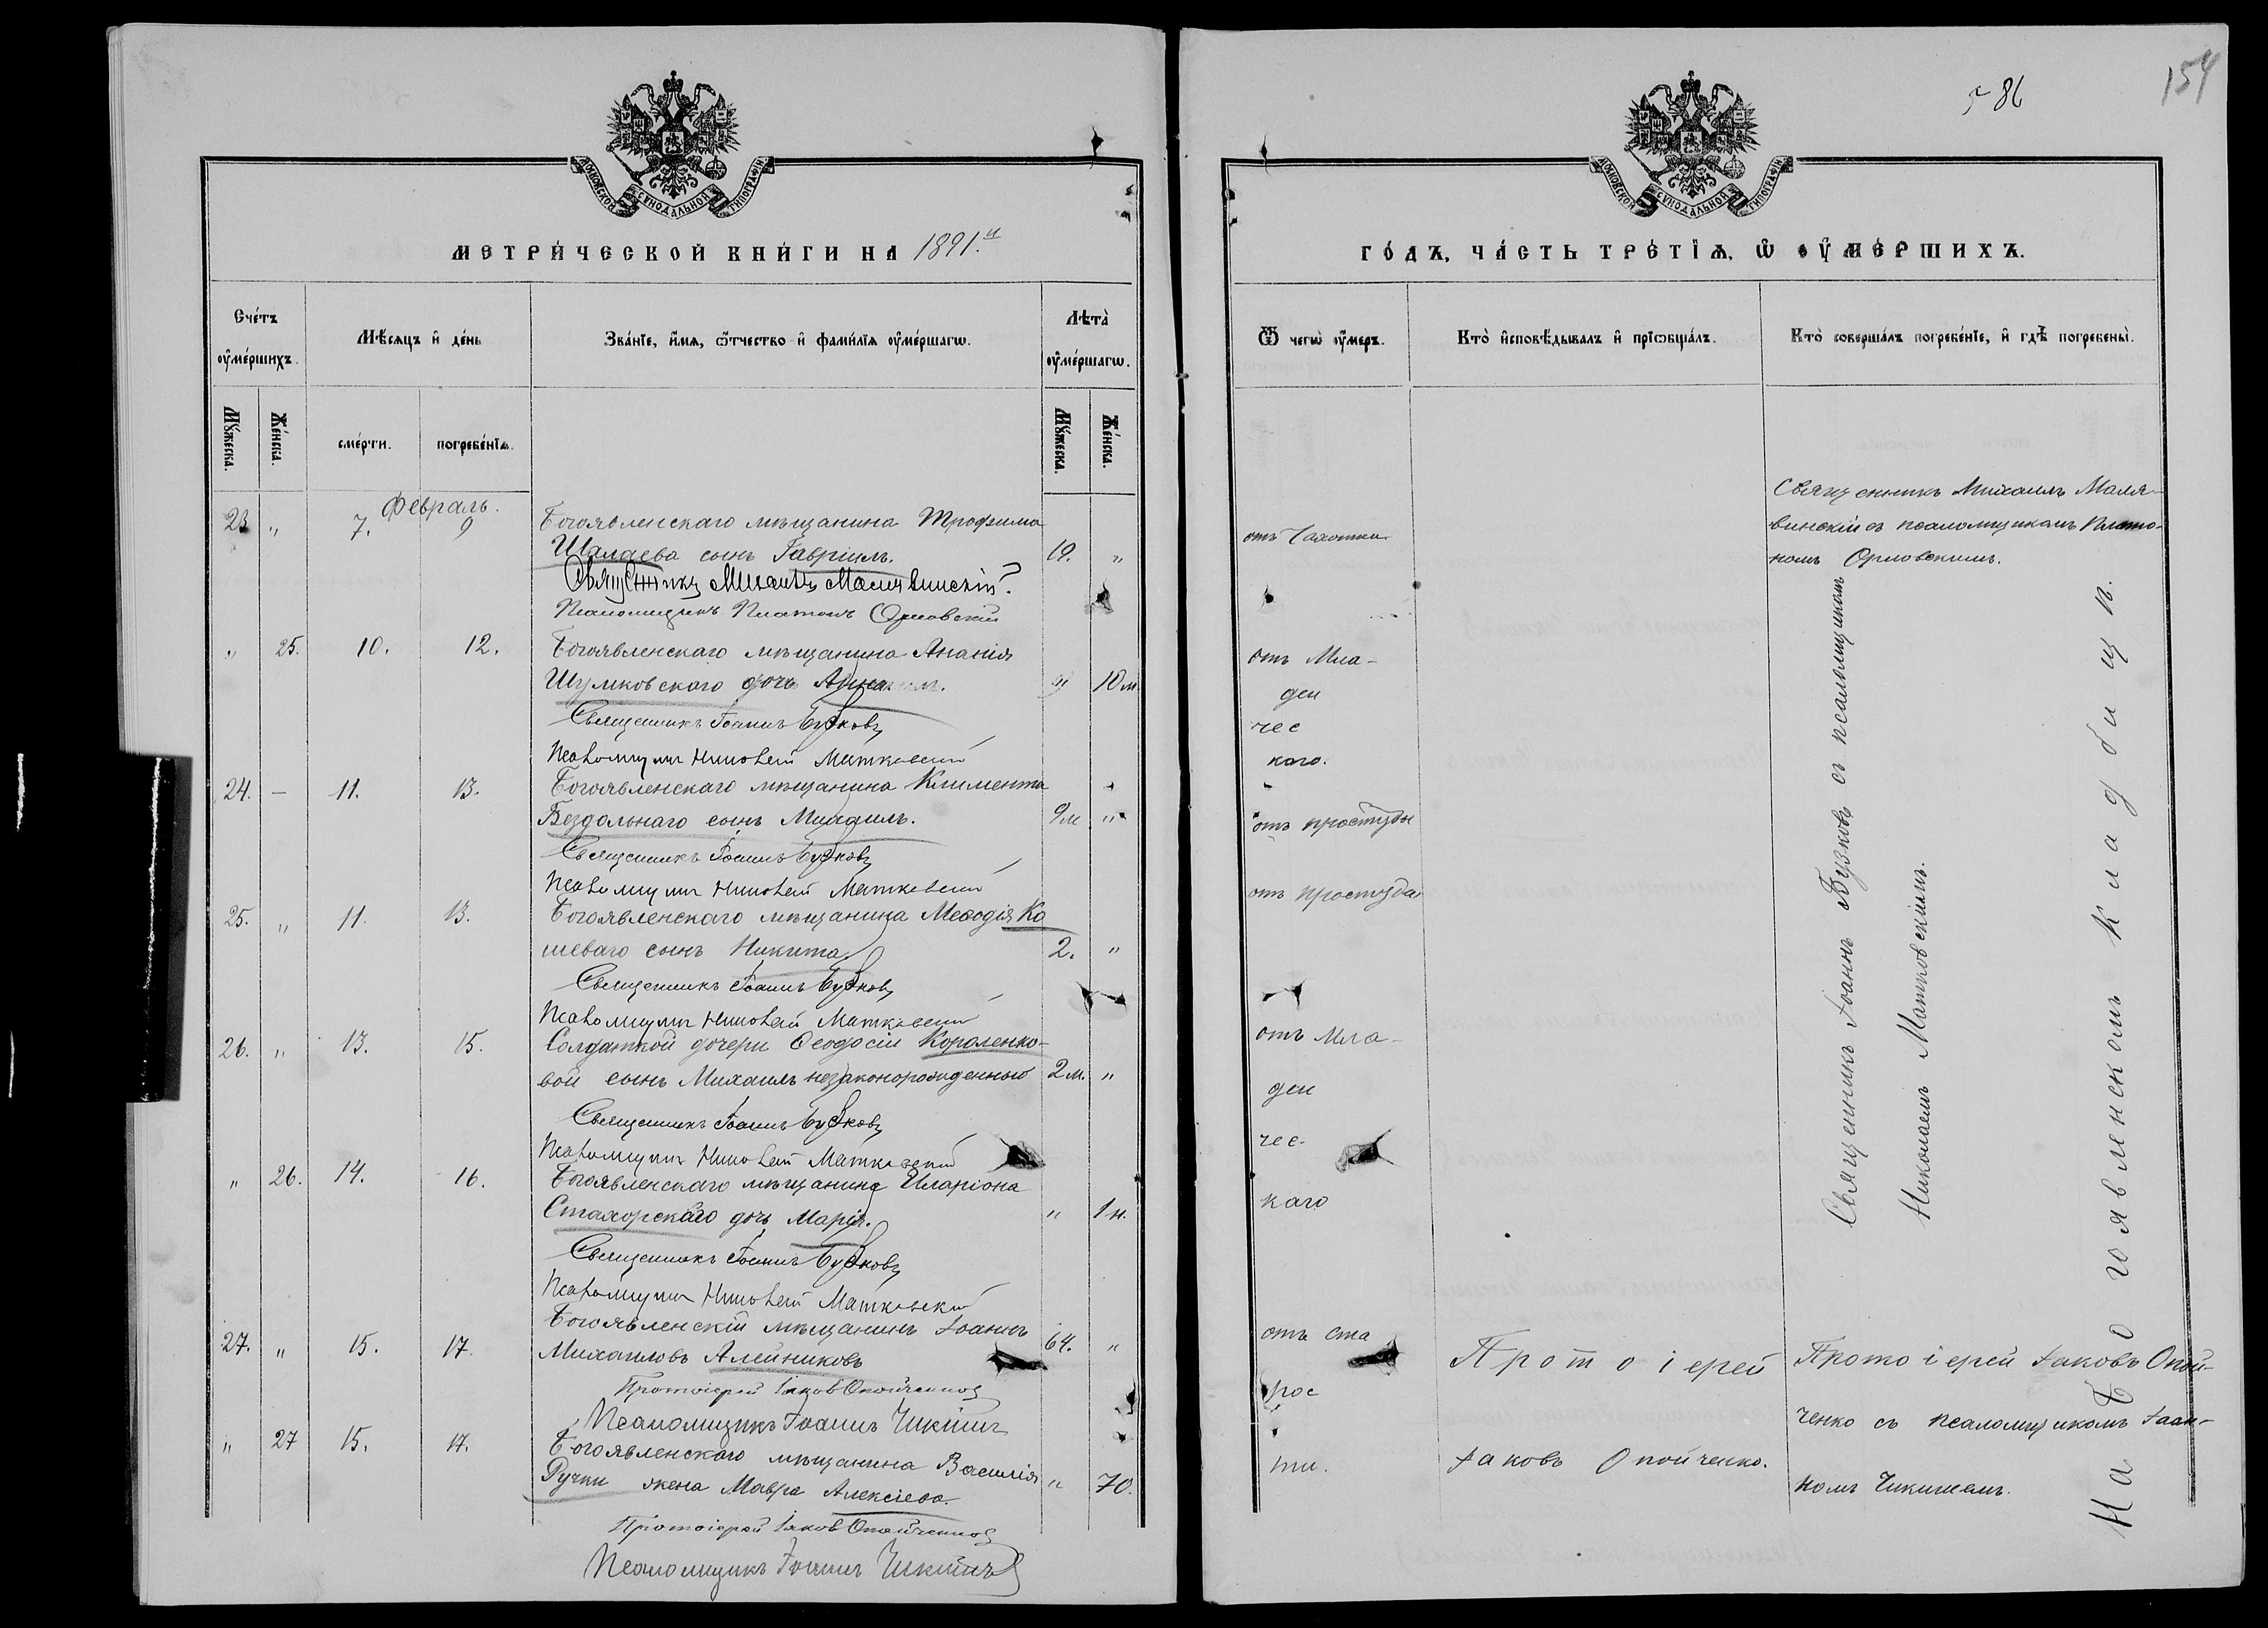 МОСКОВСКОЙ СѴНОДАЛЬНОЙ ТИПОГРАФІИ
МЕТРИ́ЧЕСКОЙ КНИ́ГИ НА 1891.й
Сче́тъ ᲂу҆ме́ршихъ.
Мѣ́сяцъ и҆ де́нь
Зва́нїе, и҆́мѧ, ѻ҆́тчество и҆ фами́лїѧ ᲂу҆ме́ршагѡ.
Лѣта̀ ᲂу҆ме́ршагѡ.
Мꙋ́жеска.
Же́нска.
сме́рти.
погребе́нїѧ.
Мꙋ́жеска.
Же́нска.
Февраль.
23 „ 7. 9 Богоявленскаго мѣщанина Трофима
Шалаева сынъ Гавріилъ. 19. „
Священникъ Михаилъ Малявинскій
Псаломщикъ Платонъ Орловскій
„ 25. 10. 12. Богоявленскаго мѣщанина Ананія
Шумковскаго дочь Анна. „ 10 м
Священникъ Іоаннъ Бузковъ
Псаломщикъ Николай Матковскій
24. — 11. 13. Богоявленскаго мѣщанина Климента
Бездольнаго сынъ Михаилъ. 9 м „
Священникъ Іоаннъ Бузковъ
Псаломщикъ Николай Матковскій
25. „ 11. 13. Богоявленскаго мѣщанина Меѳодія Ко
шеваго сынъ Никита 2. „
Священникъ Іоаннъ Бузковъ
Псаломщикъ Николай Матковскій
26. „ 13. 15. Солдатской дочери Ѳеодосіи Короленко-
вой сынъ Михаилъ незаконорожденный 2 м. „
Священникъ Іоаннъ Бузковъ
Псаломщикъ Николай Матковскій
„ 26. 14. 16. Богоявленскаго мѣщанина Иларіона
Стахорскаго дочь Марія. „ 1 н.
Священникъ Іоаннъ Бузковъ
Псаломщикъ Николай Матковскій
27. „ 15. 17. Богоявленскій мѣщанинъ Іоаннъ
Михаиловъ Алейниковъ 64. „
Протоіерей Іаковъ Опойченко
Псаломщикъ Іоаннъ Чикинъ
„ 27 15. 17. Богоявленскаго мѣщанина Василія
Ручки жена Мавра Алексіева. „ 70.
Протоіерей Іаковъ Опойченко
Псаломщикъ Іоаннъ Чикинъ
586
154
МОСКОВСКОЙ СѴНОДАЛЬНОЙ ТИПОГРАФІИ
ГО́ДЪ, ЧА́СТЬ ТРЕ́ТЇѦ, Ѡ҆ ᲂУ҆МЕ́РШИХЪ.
Ѿ чегѡ̀ ᲂу҆́меръ.
Кто̀ и҆сповѣ́дывалъ и҆ прїѡбща́лъ.
Кто̀ соверша́лъ погребе́нїе, и҆ гдѣ̀ погребены̀.
отъ Чахотки
Священникъ Михаилъ Маля-
винскій съ псаломщикомъ Плато-
номъ Орловскимъ.
отъ Мла-
ден
чес
каго.
отъ простуды
отъ простуды
отъ Мла-
ден
чес-
каго
Священникъ Іоаннъ Бузковъ съ псаломщикомъ
Николаемъ Матковскимъ.
На Богоявленскомъ кладбищѣ.
отъ ста
рос
ти.
Протоіерей
Іаковъ Опойченко.
Протоіерей Іаковъ Опой-
ченко съ псаломщикомъ Іоан-
номъ Чикинымъ.